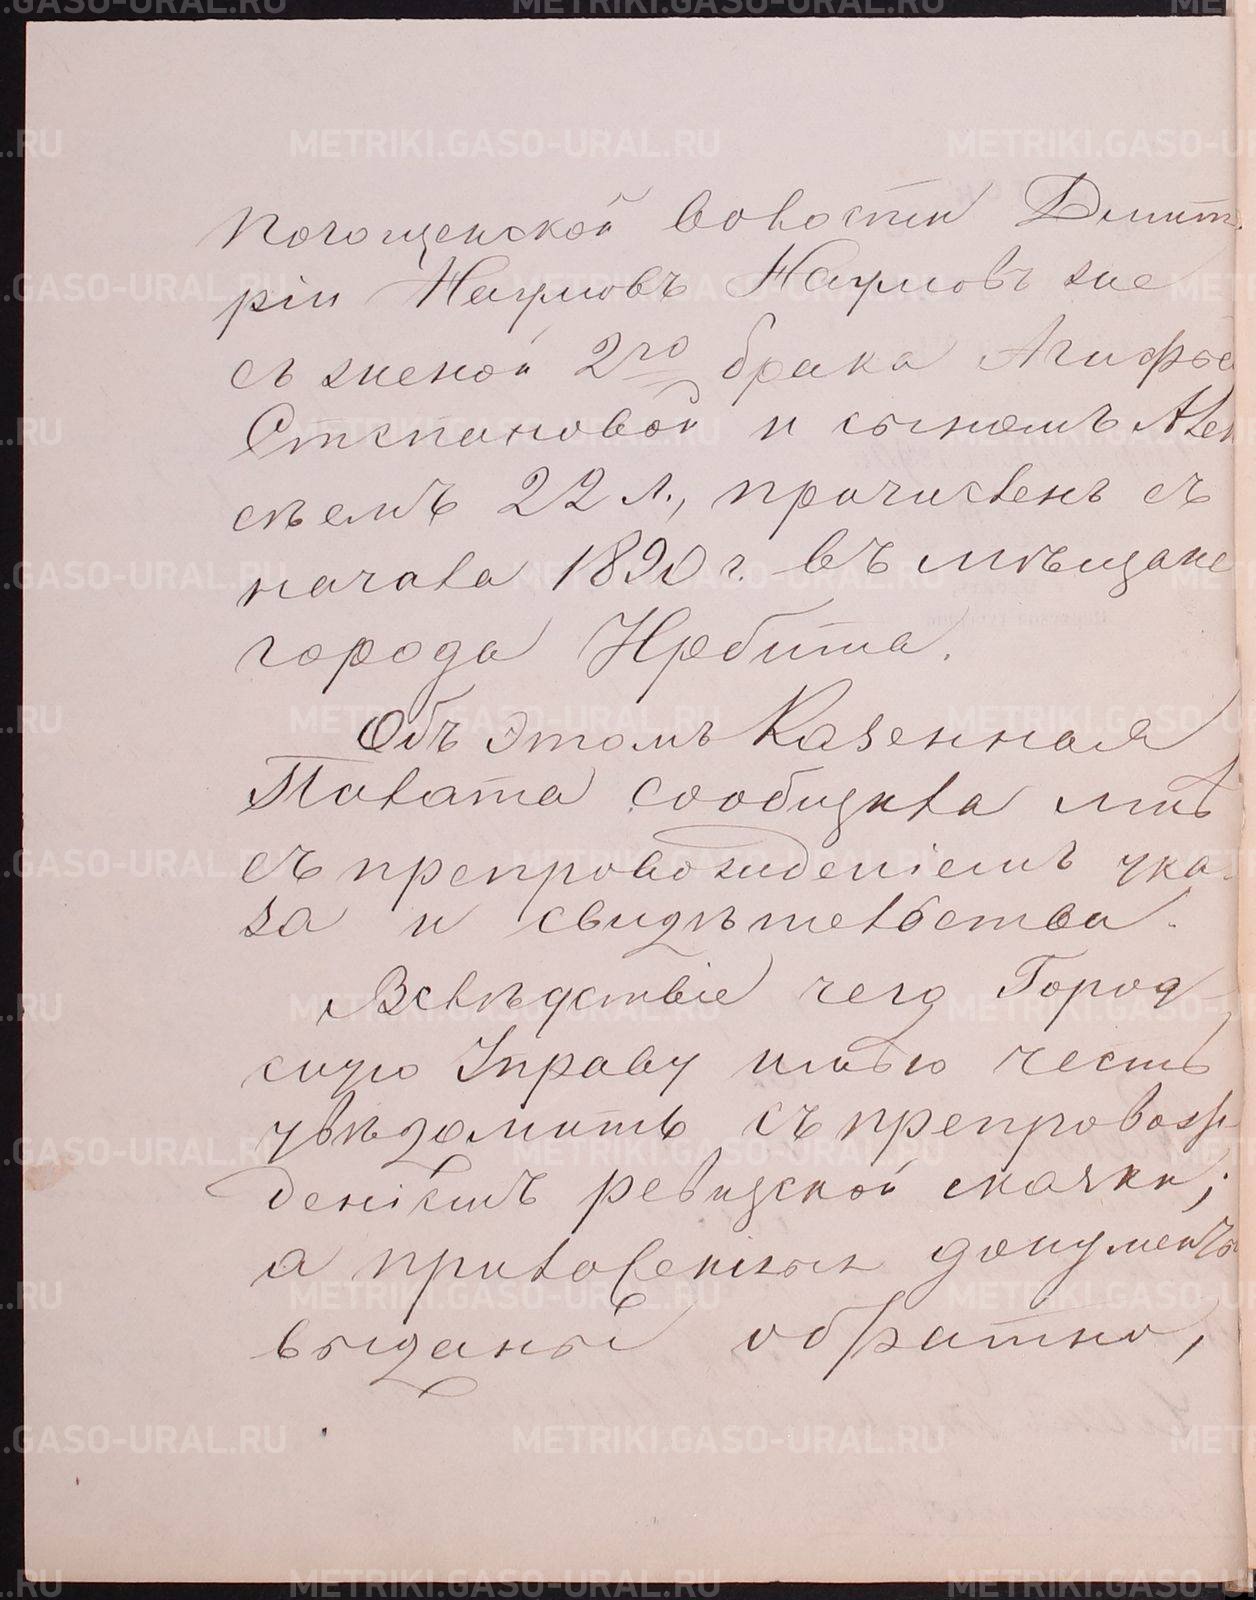 Погощенской волости Дмит
рій Наумовъ Наумовъ же
съ женой 2го брака Агафьей
Степановой и сыномъ Алек
сѣемъ 22 л., причисленъ съ
начала 1890 г. въ мѣщане
города Ирбита.
Объ этомъ Казенная
Палата сообщила мнѣ
съ препровожденіемъ ука-
за и свидѣтельства.
Вслѣдствіе чего Город
скую Управу имѣю честь
увѣдомить съ препровож
деніемъ ревизской сказки;
а приложенныя документы
выданы обратно,
METRIKI.GASO-URAL.RU